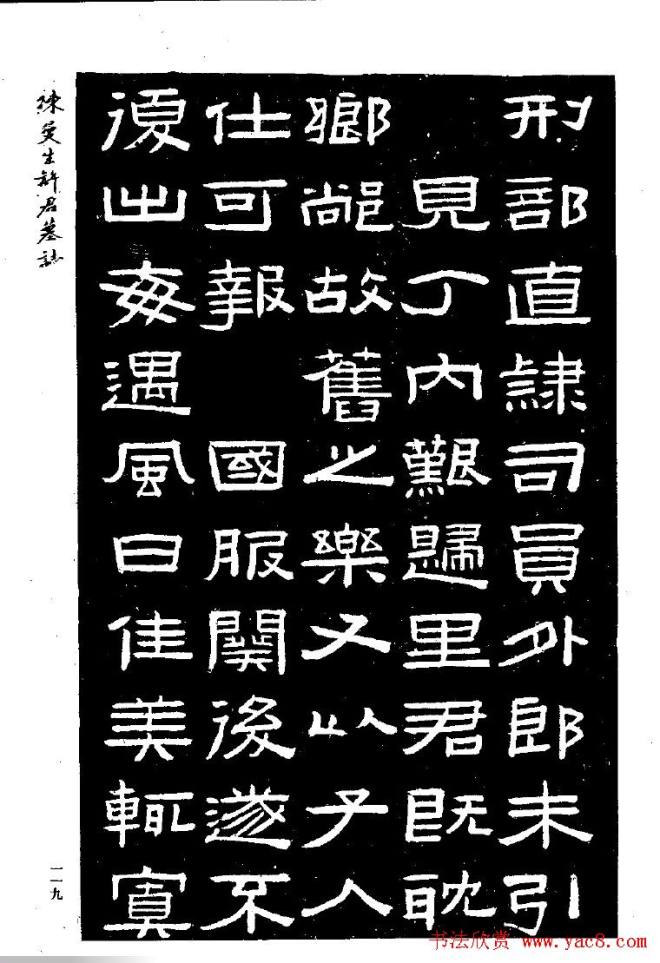 刑部直隸司員外郎未引
見丁內艱歸里君既耽
鄉䣊故舊之樂又以子入
仕可報 國服闋後遂不
復出每遇風日佳美輒寘
陳曼生許君墓誌
一一九
书法欣赏 www.yac8.com